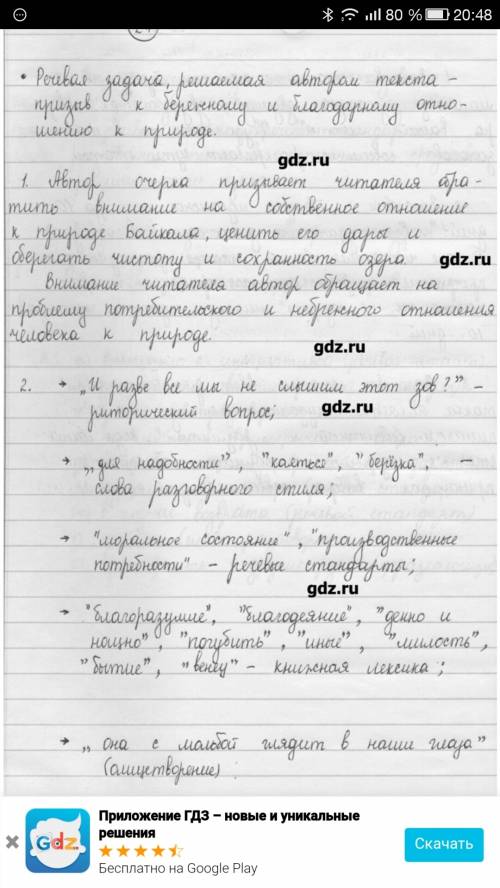 80 % 20:48
• Речевая задача, решаемая автором текста –
призыв к бережному и благодарному отно-
шению к природе.
gdz.ru
1. Автор очерка призывает читателя обра-
тить внимание на собственное отношение
к природе Байкала, ценить его дары и
оберегать чистоту и сохранность озера.
gdz.ru
Внимание читателя автор обращает на
проблему потребительского и небрежного отношения
человека к природе.
gdz.ru
2. → „И разве все мы не слышим этот зов?” –
риторический вопрос;
gdz.ru
→ „для надобности”, "каяться", "берёзка", –
слова разговорного стиля;
→ "моральное состояние", "производственные
потребности" – речевые стандарты;
gdz.ru
→ "благоразумие", "благодеяние", "денно и
нощно", "погубить", "иные", "милость",
"бытие", "венцу" – книжная лексика;
→ „она с мольбой глядит в наши глаза”
(олицетворение)
Приложение ГДЗ – новые и уникальные
решения
Бесплатно на Google Play
Gdz
Скачать